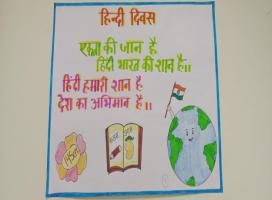 हिन्दी दिवस
एकता की जान है
हिंदी भारत की शान है।।
हिंदी हमारी शान है
देश का अभिमान है।।